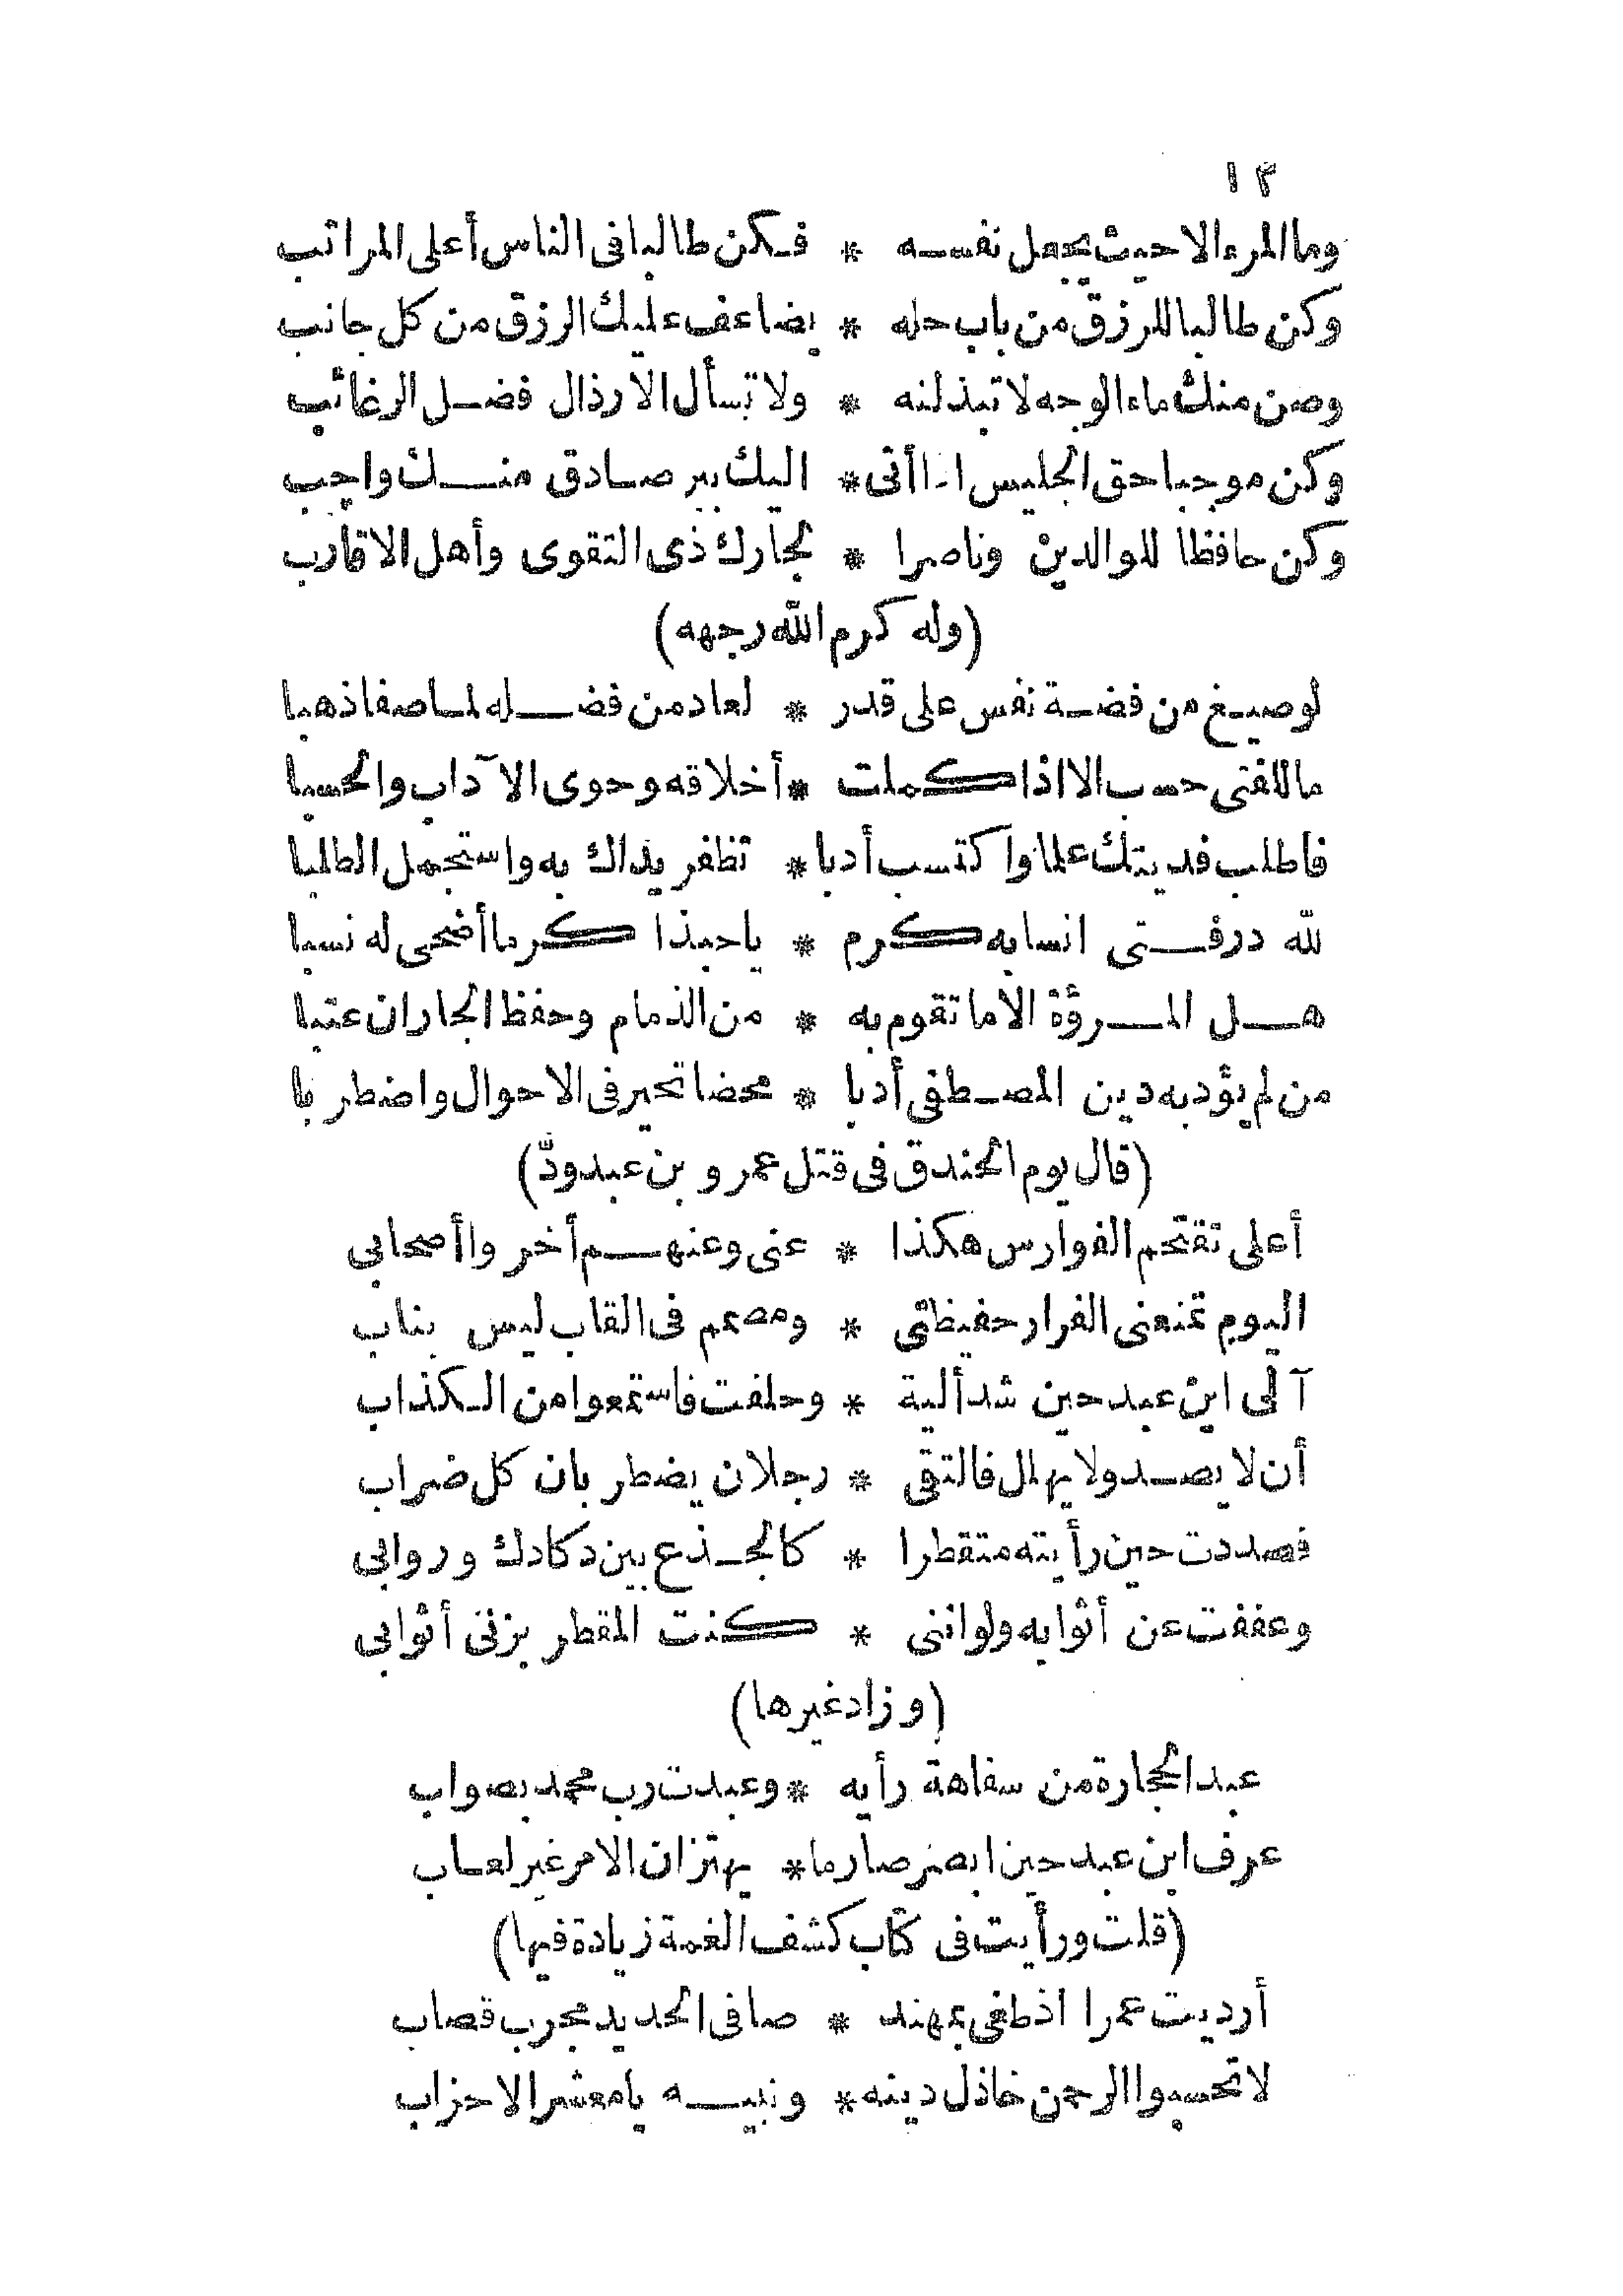 ١٢
وما المرء الا حيث يجعل نفسه * فكن طالبا فى الناس أعلى المراتب
وكن طالبا للرزق من باب حله * يضاعف عليك الرزق من كل جانب
وصن منك ماء الوجه لا تبذلنه * ولا تسأل الارذال فضل الرغائب
وكن موجبا حق الجليس اذا أتى * اليك ببر صادق منك واجب
وكن حافظا للوالدين وناصرا * لجارك ذى التقوى وأهل الاقارب
(وله كرم الله وجهه)
لو صيغ من فضة نفس على قدر * لعاد من فضله لما صفا ذهبا
ما للفتى حسب الا اذا كملت * أخلاقه وحوى الآداب والحسبا
فاطلب فديتك علما واكتسب أدبا * تظفر يداك به واستجمل الطلبا
لله در فتى انسابه كرم * يا حبذا كرما أضحى له نسبا
هل المروؤة الا ما تقوم به * من الذمام وحفظ الجار ان عتبا
من لم يؤدبه دين المصطفى أدبا * محضا تحير فى الاحوال واضطربا
(قال يوم الخندق فى قتل عمرو بن عبدودّ)
أعلى تقتحم الفوارس هكذا * عنى وعنهم أخروا أصحابى
اليوم تمنعنى الفرار حفيظتى * ومصمم فى القلب ليس بناب
آلى ابن عبد حين شد ألية * وحلفت فاستمعوا من الكذاب
أن لا يصد ولا يهلل فالتقى * رجلان يضطربان كل ضراب
فصددت حين رأيته متقطرا * كالجذع بين دكادك وروابى
وعففت عن أثوابه ولو اننى * كنت المقطر بزنى أثوابى
(وزاد غيرها)
عبد الحجارة من سفاهة رأيه * وعبدت رب محمد بصواب
عرف ابن عبد حين ابصر صارما * يهتز ان الامر غير لعاب
(قلت ورأيت فى كتاب كشف الغمة زيادة فيها)
أرديت عمرا اذ طغى بمهند * صافى الحديد مجرب قصاب
لا تحسبوا الرحمن خاذل دينه * ونبيه يا معشر الاحزاب